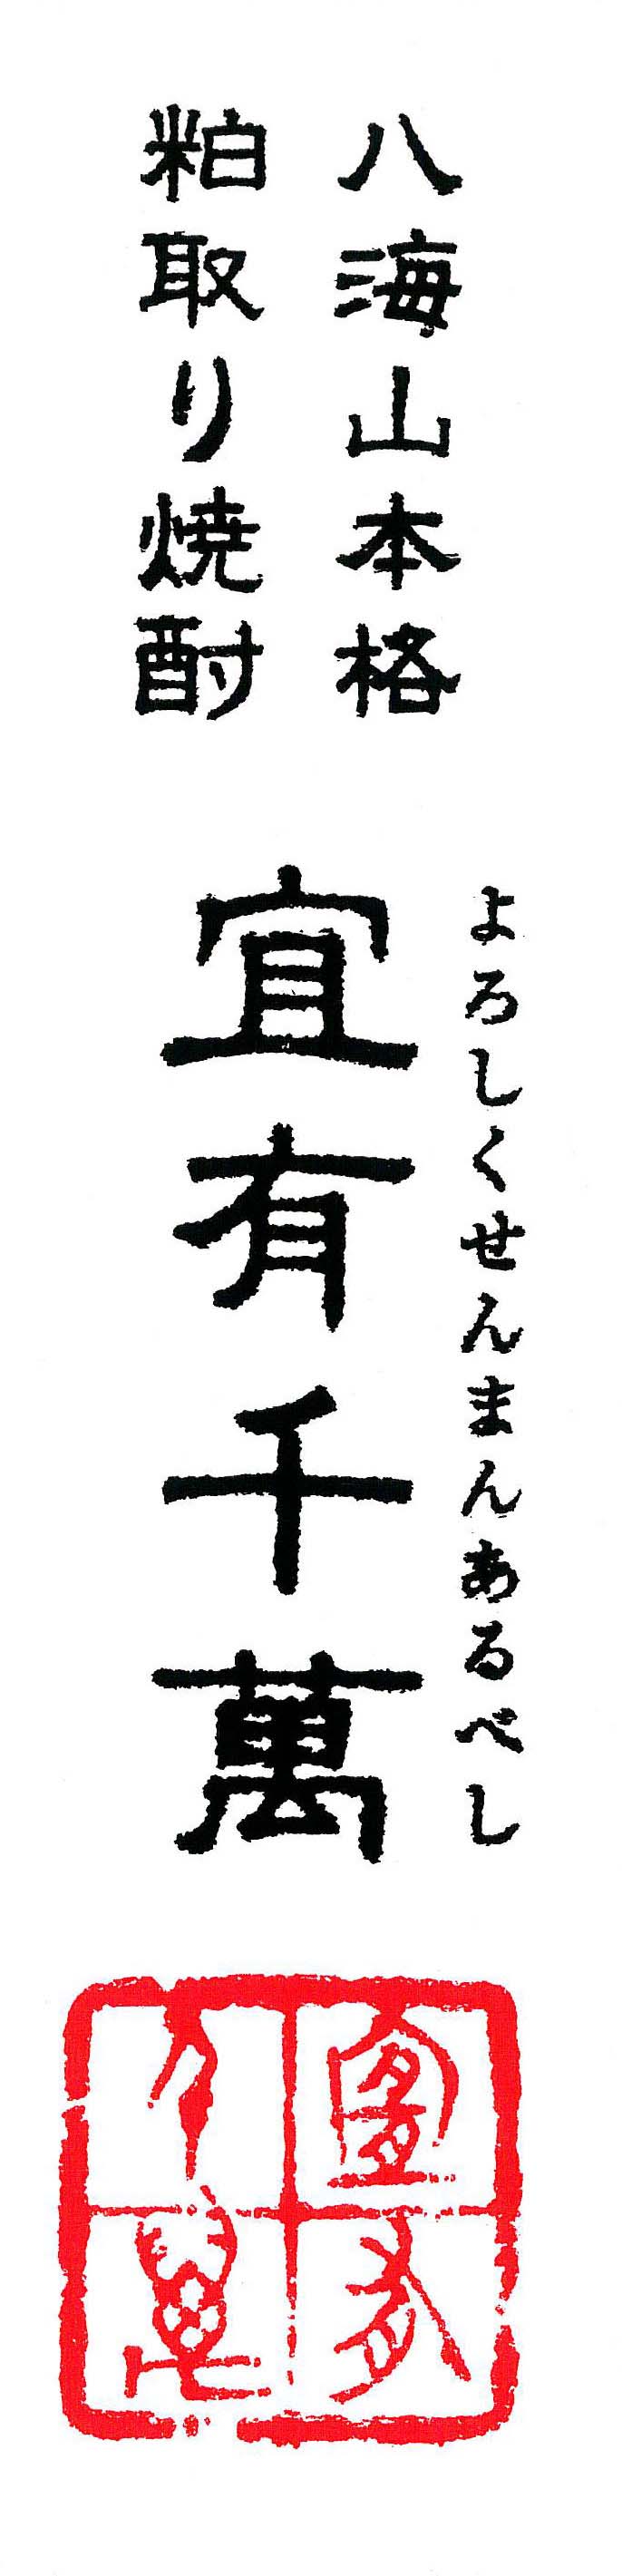 八海山本格
粕取り焼酎
よろしくせんまんあるべし
宜有千萬
宜有千萬